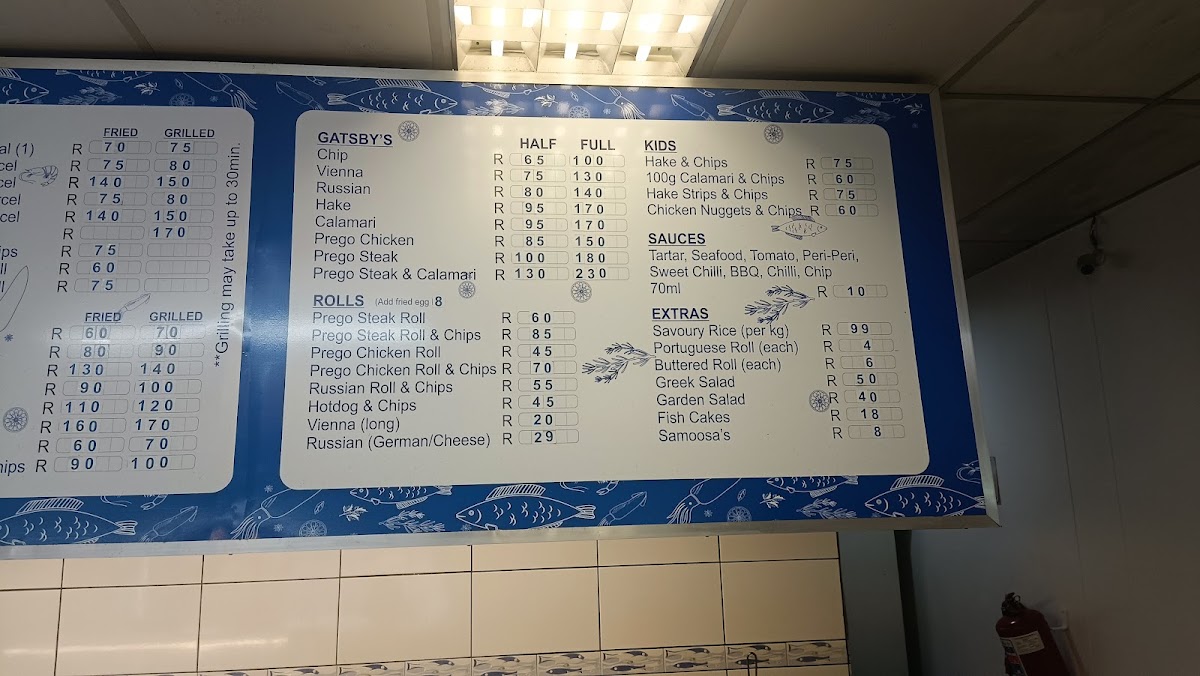 FRIED GRILLED
al (1) R 70 75
cel R 75 80
cel R 140 150
rcel R 75 80
rcel R 140 150
R 170
ps R 75
ll R 60
ll R 75
FRIED GRILLED
R 60 70
R 80 90
R 130 140
R 90 100
R 110 120
R 160 170
R 60 70
hips R 90 100
**Grilling may take up to 30min.
GATSBY'S HALF FULL
Chip R 65 100
Vienna R 75 130
Russian R 80 140
Hake R 95 170
Calamari R 95 170
Prego Chicken R 85 150
Prego Steak R 100 180
Prego Steak & Calamari R 130 230
ROLLS (Add fried egg 8
Prego Steak Roll R 60
Prego Steak Roll & Chips R 85
Prego Chicken Roll R 45
Prego Chicken Roll & Chips R 70
Russian Roll & Chips R 55
Hotdog & Chips R 45
Vienna (long) R 20
Russian (German/Cheese) R 29
KIDS
Hake & Chips R 75
100g Calamari & Chips R 60
Hake Strips & Chips R 75
Chicken Nuggets & Chips R 60
SAUCES
Tartar, Seafood, Tomato, Peri-Peri,
Sweet Chilli, BBQ, Chilli, Chip
70ml R 10
EXTRAS
Savoury Rice (per kg) R 99
Portuguese Roll (each) R 4
Buttered Roll (each) R 6
Greek Salad R 50
Garden Salad R 40
Fish Cakes R 18
Samoosa's R 8